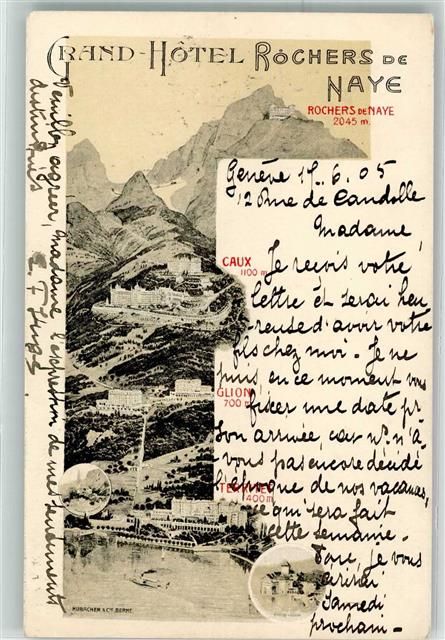 GRAND-HÔTEL ROCHERS DE
NAYE
ROCHERS DE NAYE
2045 m.
Genève 17. 6. 05
12 Rue de Candolle
Madame,
CAUX
1100 m
Je reçois votre
lettre et serai heu
reuse d'avoir votre
fils chez moi. Je ne
puis, en ce moment vous
GLION
700 m
fixer une date pr
son arrivée, car ns n'a-
vons pas encore décidé
TERRITET
400 m
l'époque de nos vacances,
ce qui sera fait
cette semaine.
je vous
écrirai
Samedi
prochain -
Veuillez agréer, Madame l'expression de mes sentiments
distingués
HUBACHER & CIE BERNE